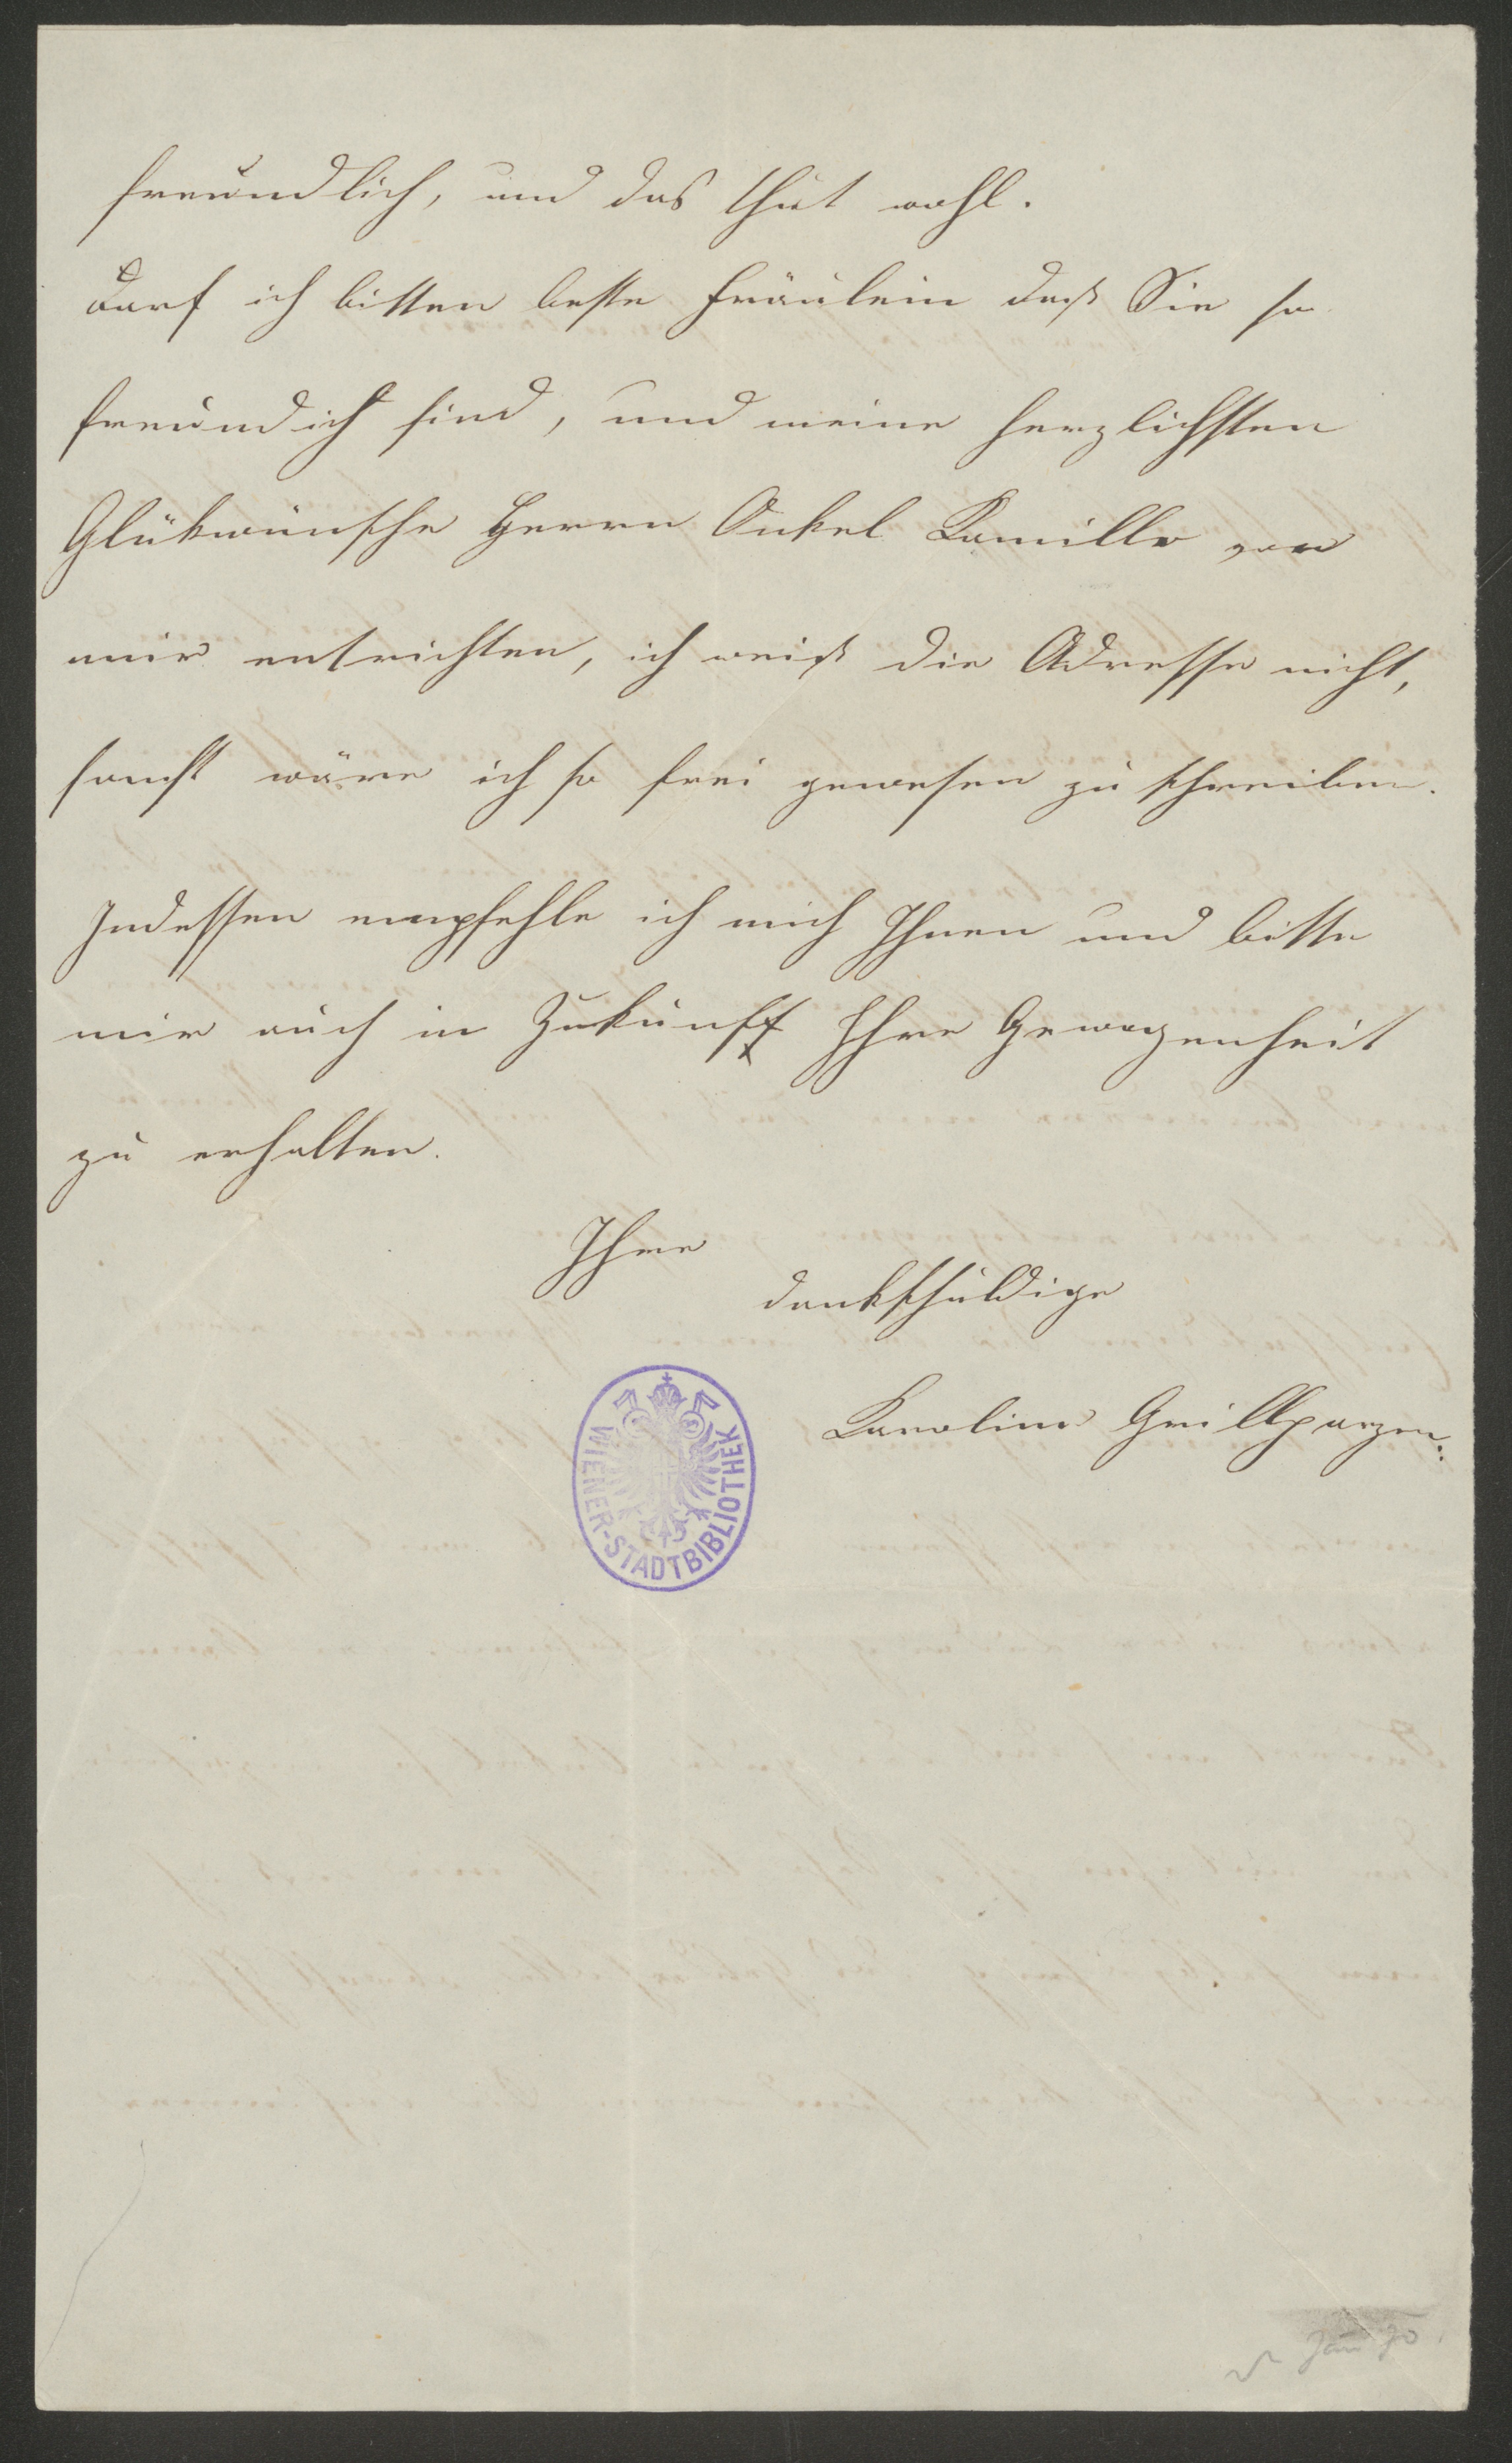 freundlich, und das thut wohl.
Darf ich bitten beste Fräulein daß Sie so
freundich sind, und meine herzlichsten
Glükwünsche Herrn Onkel Kamillo von
mir entrichten, ich weiß die Adresse nicht,
sonst wäre ich so frei gewesen zu schreiben.
Indessen empfehle ich mich Ihnen und bitte
mir auch in Zukunft Ihre Gewogenheit
zu erhalten.
Ihre
dankschuldige
Karoline Grillparzer.
WIENER-STADTBIBLIOTHEK